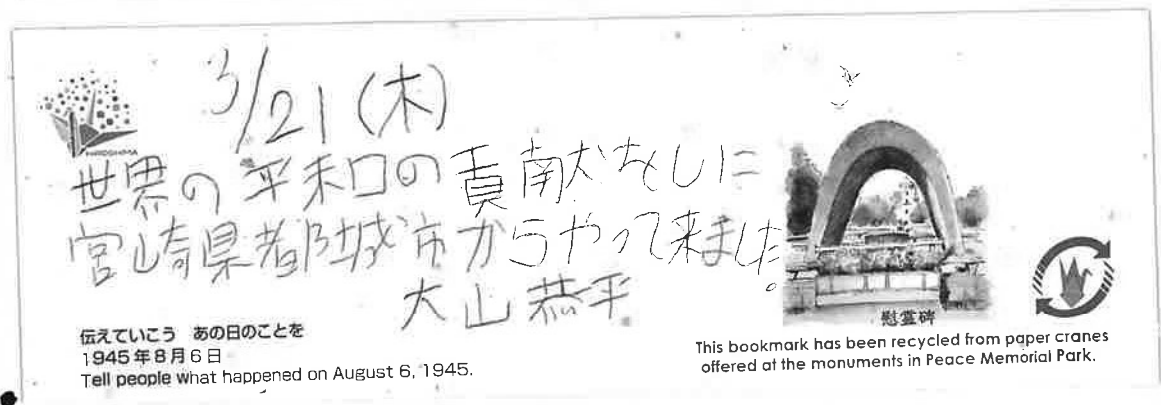 3/21(木)
HIROSHIMA
世界の平和の貢献をしに
宮崎県都城市からやって来ました。
大山恭平
伝えていこう あの日のことを
1945年8月6日
Tell people what happened on August 6, 1945.
慰霊碑
This bookmark has been recycled from paper cranes
offered at the monuments in Peace Memorial Park.